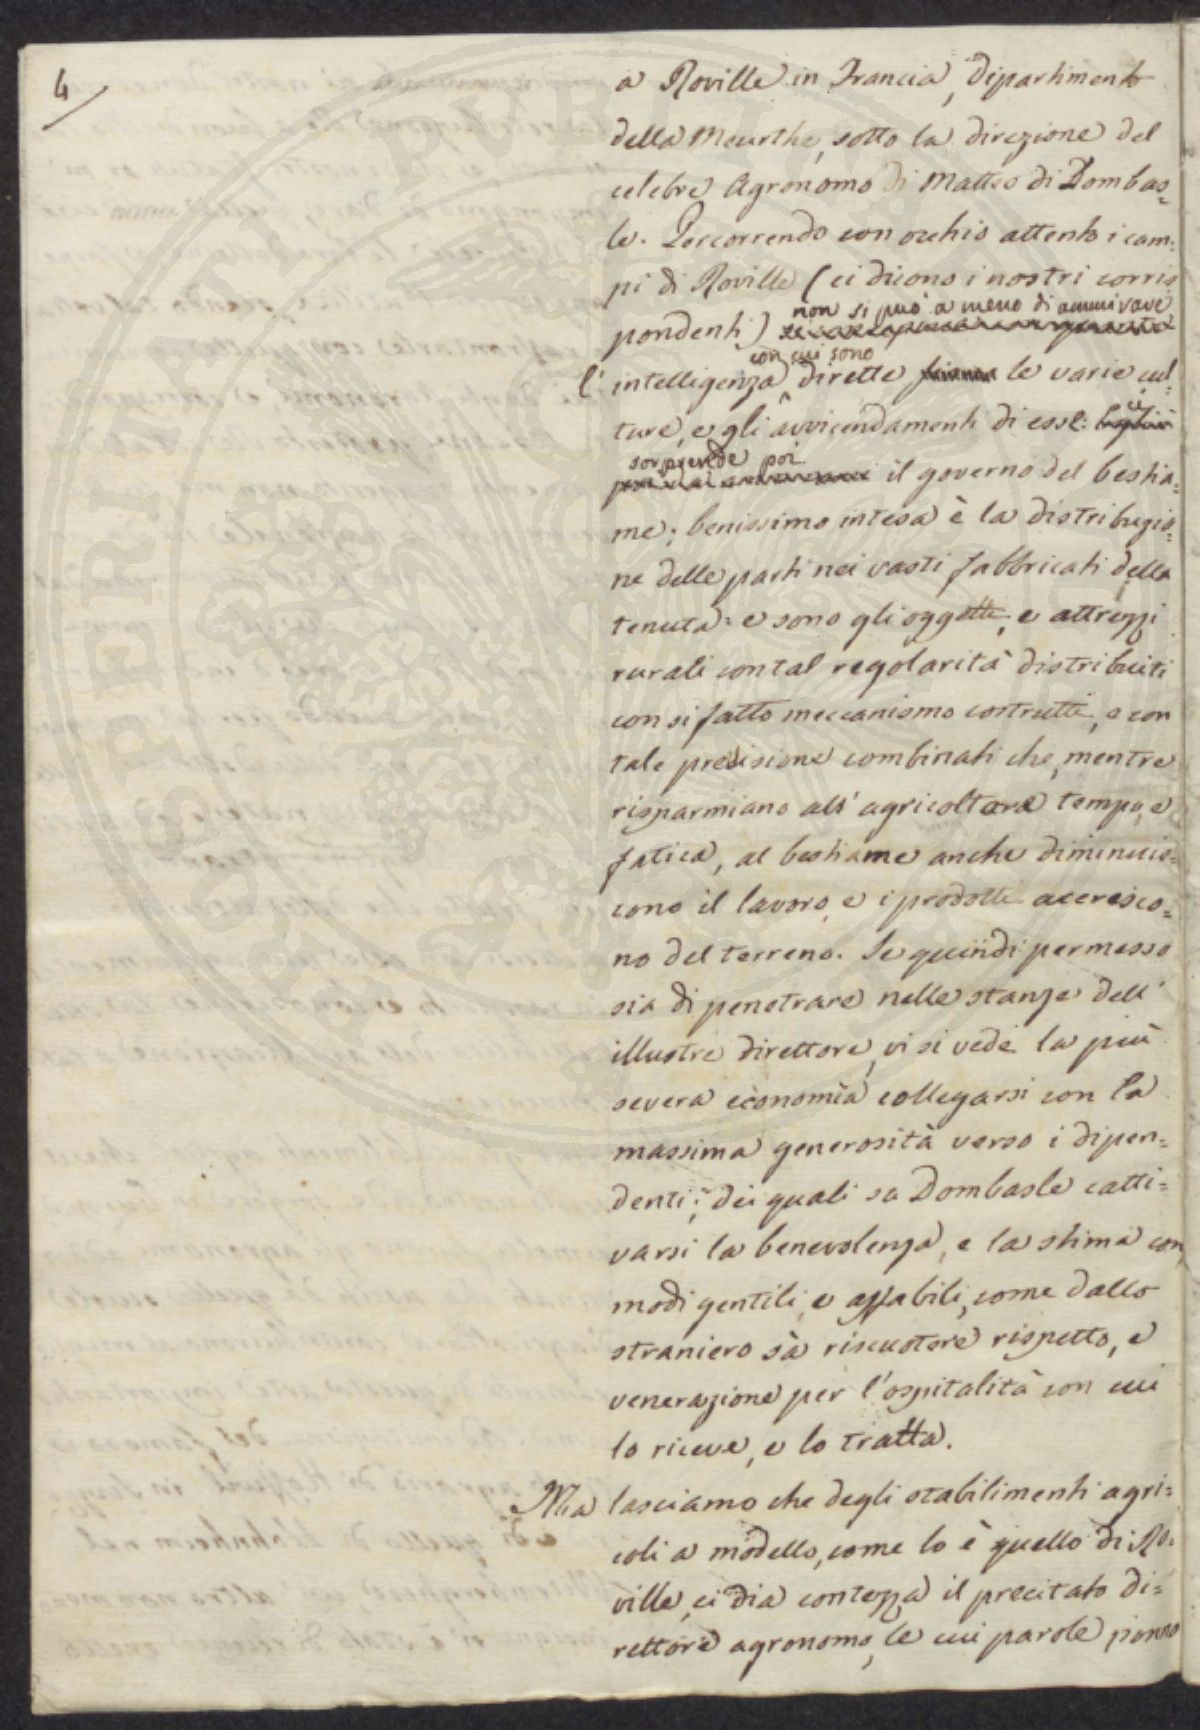 4
a Roville in Francia, Dipartimento
della Meurthe, sotto la direzione del
celebre Agronomo di Matteo di Dombas=
le. Percorrendo con occhio attento i cam=
pi di Roville (ci dicono i nostri corris
pondenti) non si può a meno di ammirare
l'intelligenza con cui sono dirette le varie cul=
ture, e gli avvicendamenti di esse: ci
sorprende poi il governo del bestia=
me; benissimo intesa è la distribuzio=
ne delle parti nei vasti fabbricati della
tenuta: e sono gli oggetti, e attrezzi
rurali con tal regolarità distribuiti
con sì fatto meccanismo costrutti, e con
tale precisione combinati che, mentre
risparmiano all'agricoltore tempo, e
fatica, al bestiame anche diminuis=
cono il lavoro, e i prodotti accresco=
no del terreno. Se quindi permesso
sia di penetrare nelle stanze dell'
illustre direttore, vi si vede la più
severa economia collegarsi con la
massima generosità verso i dipen=
denti; dei quali sa Dombasle catti=
varsi la benevolenza, e la stima con
modi gentili, e affabili, come dallo
straniero sà riscuotere rispetto, e
venerazione per l'ospitalità con cui
lo riceve, e lo tratta.
Ma lasciamo che degli stabilimenti agri=
coli a modello, come lo è quello di Ro=
ville, ci dia contezza il precitato di=
rettore agronomo, le cui parole ponno